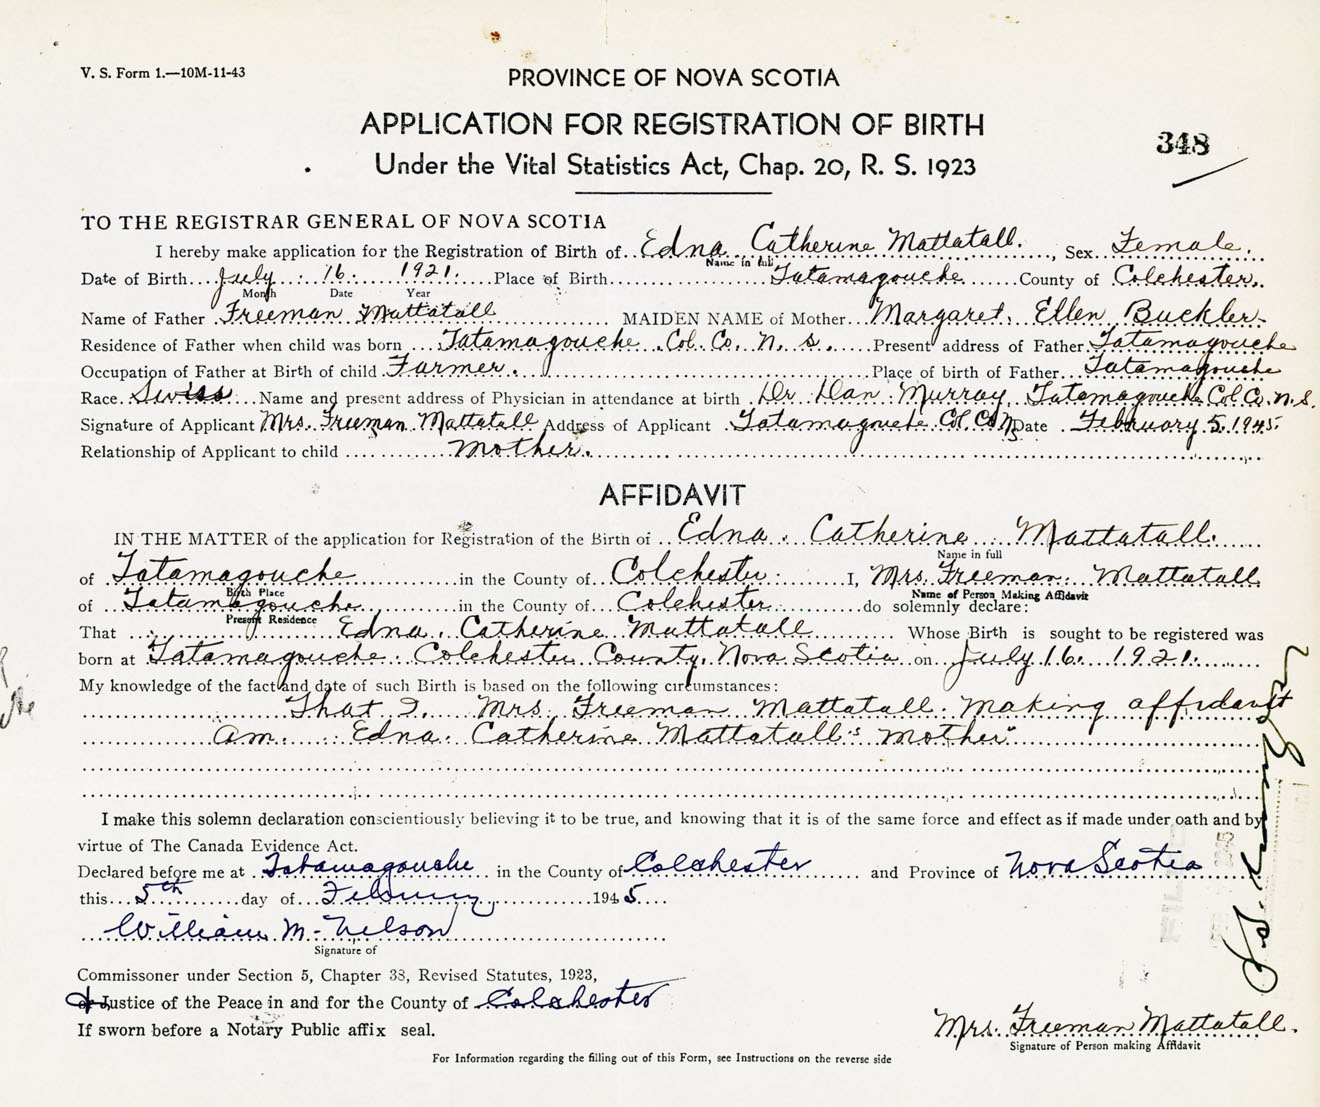 V. S. Form 1.—10M-11-43
PROVINCE OF NOVA SCOTIA
APPLICATION FOR REGISTRATION OF BIRTH
348
Under the Vital Statistics Act, Chap. 20, R. S. 1923
TO THE REGISTRAR GENERAL OF NOVA SCOTIA
I hereby make application for the Registration of Birth of Edna Catherine Mattatall. , Sex Female.
Name in full
Date of Birth July 16. 1921. Place of Birth Tatamagouche County of Colchester.
Month Date Year
Name of Father Freeman Mattatall MAIDEN NAME of Mother Margaret Ellen Buckler
Residence of Father when child was born Tatamagouche Col. Co. N. S. Present address of Father Tatamagouche
Occupation of Father at Birth of child Farmer. Place of birth of Father Tatamagouche
Race Swiss Name and present address of Physician in attendance at birth Dr Dan Murray, Tatamagouche Col Co. N.S.
Signature of Applicant Mrs. Freeman Mattatall Address of Applicant Tatamagouche Col. Co N Date February 5, 1945.
Relationship of Applicant to child Mother.
AFFIDAVIT
IN THE MATTER of the application for Registration of the Birth of Edna Catherine Mattatall.
Name in full
of Tatamagouche in the County of Colchester I, Mrs. Freeman Mattatall
Birth Place Name of Person Making Affidavit
of Tatamagouche in the County of Colchester do solemnly declare:
Present Residence
That Edna Catherine Mattatall Whose Birth is sought to be registered was
born at Tatamagouche Colchester County, Nova Scotia on July 16. 1921.
My knowledge of the fact and date of such Birth is based on the following circumstances:
That I Mrs. Freeman Mattatall making affidavit
Am Edna Catherine Mattatall's mother
I make this solemn declaration conscientiously believing it to be true, and knowing that it is of the same force and effect as if made under oath and by
virtue of The Canada Evidence Act.
Declared before me at Tatamagouche in the County of Colchester and Province of Nova Scotia
this 5th day of February 1945
William M. Nelson
Signature of
Commissoner under Section 5, Chapter 38, Revised Statutes, 1923,
or Justice of the Peace in and for the County of Colchester
If sworn before a Notary Public affix seal.
Mrs. Freeman Mattatall.
Signature of Person making Affidavit
For Information regarding the filling out of this Form, see Instructions on the reverse side